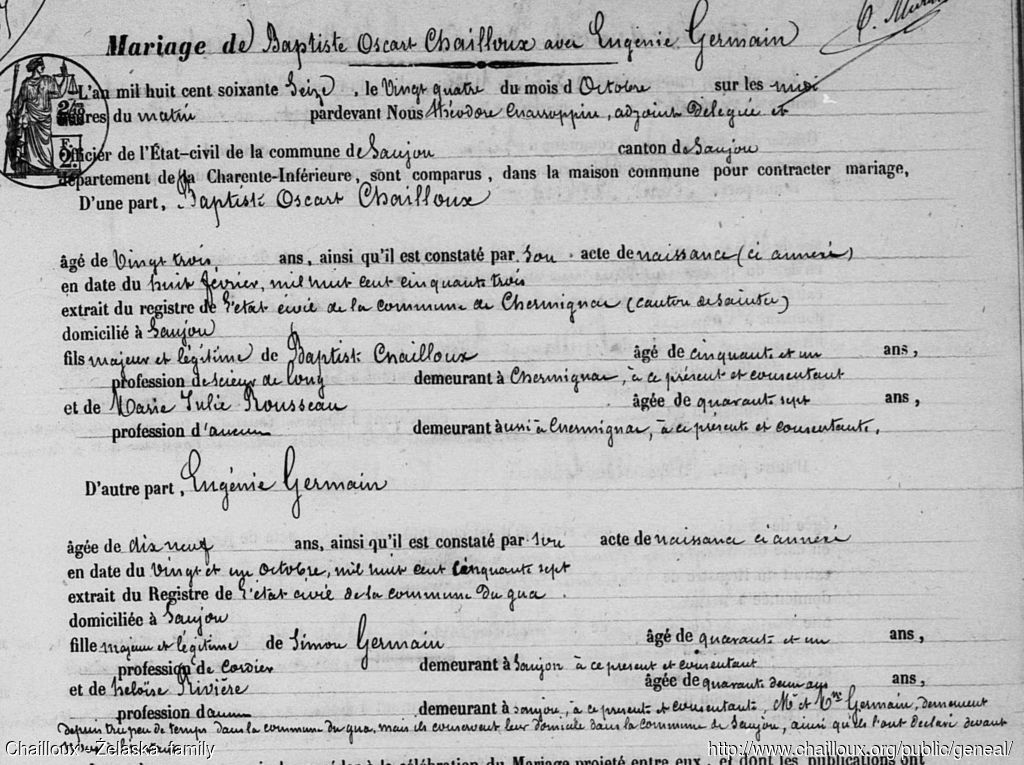 Mariage de Baptiste Oscart Chailloux avec Eugénie Germain
L'an mil huit cent soixante Seize, le Vingt quatre du mois d'Octobre sur les midi
heures du matin pardevant Nous Théodore, adjoint Delegué et
Officier de l'État-civil de la commune de Saujon canton de Saujon
département de la Charente-Inférieure, sont comparus, dans la maison commune pour contracter mariage,
D'une part, Baptiste Oscart Chailloux
âgé de Vingt trois, ans, ainsi qu'il est constaté par son acte de naissance (ci annexé)
en date du huit février, mil huit cent cinquante trois
extrait du registre de l'état civil de la commune de Chermignac (canton de Saintes)
domicilié à Saujon
fils majeur et légitime de Baptiste Chailloux âgé de cinquante et un ans,
profession de scieur de long demeurant à Chermignac, à ce présent et consentant
et de Marie Julie Rousseau âgée de quarante sept ans,
profession d'aucune demeurant aussi à Chermignac, à ce présente et consentante,
D'autre part, Eugénie Germain
âgée de dix neuf ans, ainsi qu'il est constaté par son acte de naissance ci annexé
en date du Vingt et un Octobre, mil huit cent cinquante sept
extrait du Registre de l'état civil de la commune du gua
domiciliée à Saujon
fille majeure et légitime de Simon Germain âgé de quarante et un ans,
profession de Cordier demeurant à Saujon à ce présent et consentant
et de héloïse Rivière âgée de quarante deux ans ans,
profession d'aucune demeurant à Saujon, à ce présente et consentante, Mr et Mme Germain, demeurent
depuis très peu de temps dans la commune du gua, mais ils conservent leur domicile dans la commune de Saujon, ainsi qu'ils l'ont déclaré devant
Chailloux - Żelaska family http://www.chailloux.org/public/geneal/
à la célébration du Mariage projeté entre eux, et dont les publications ont